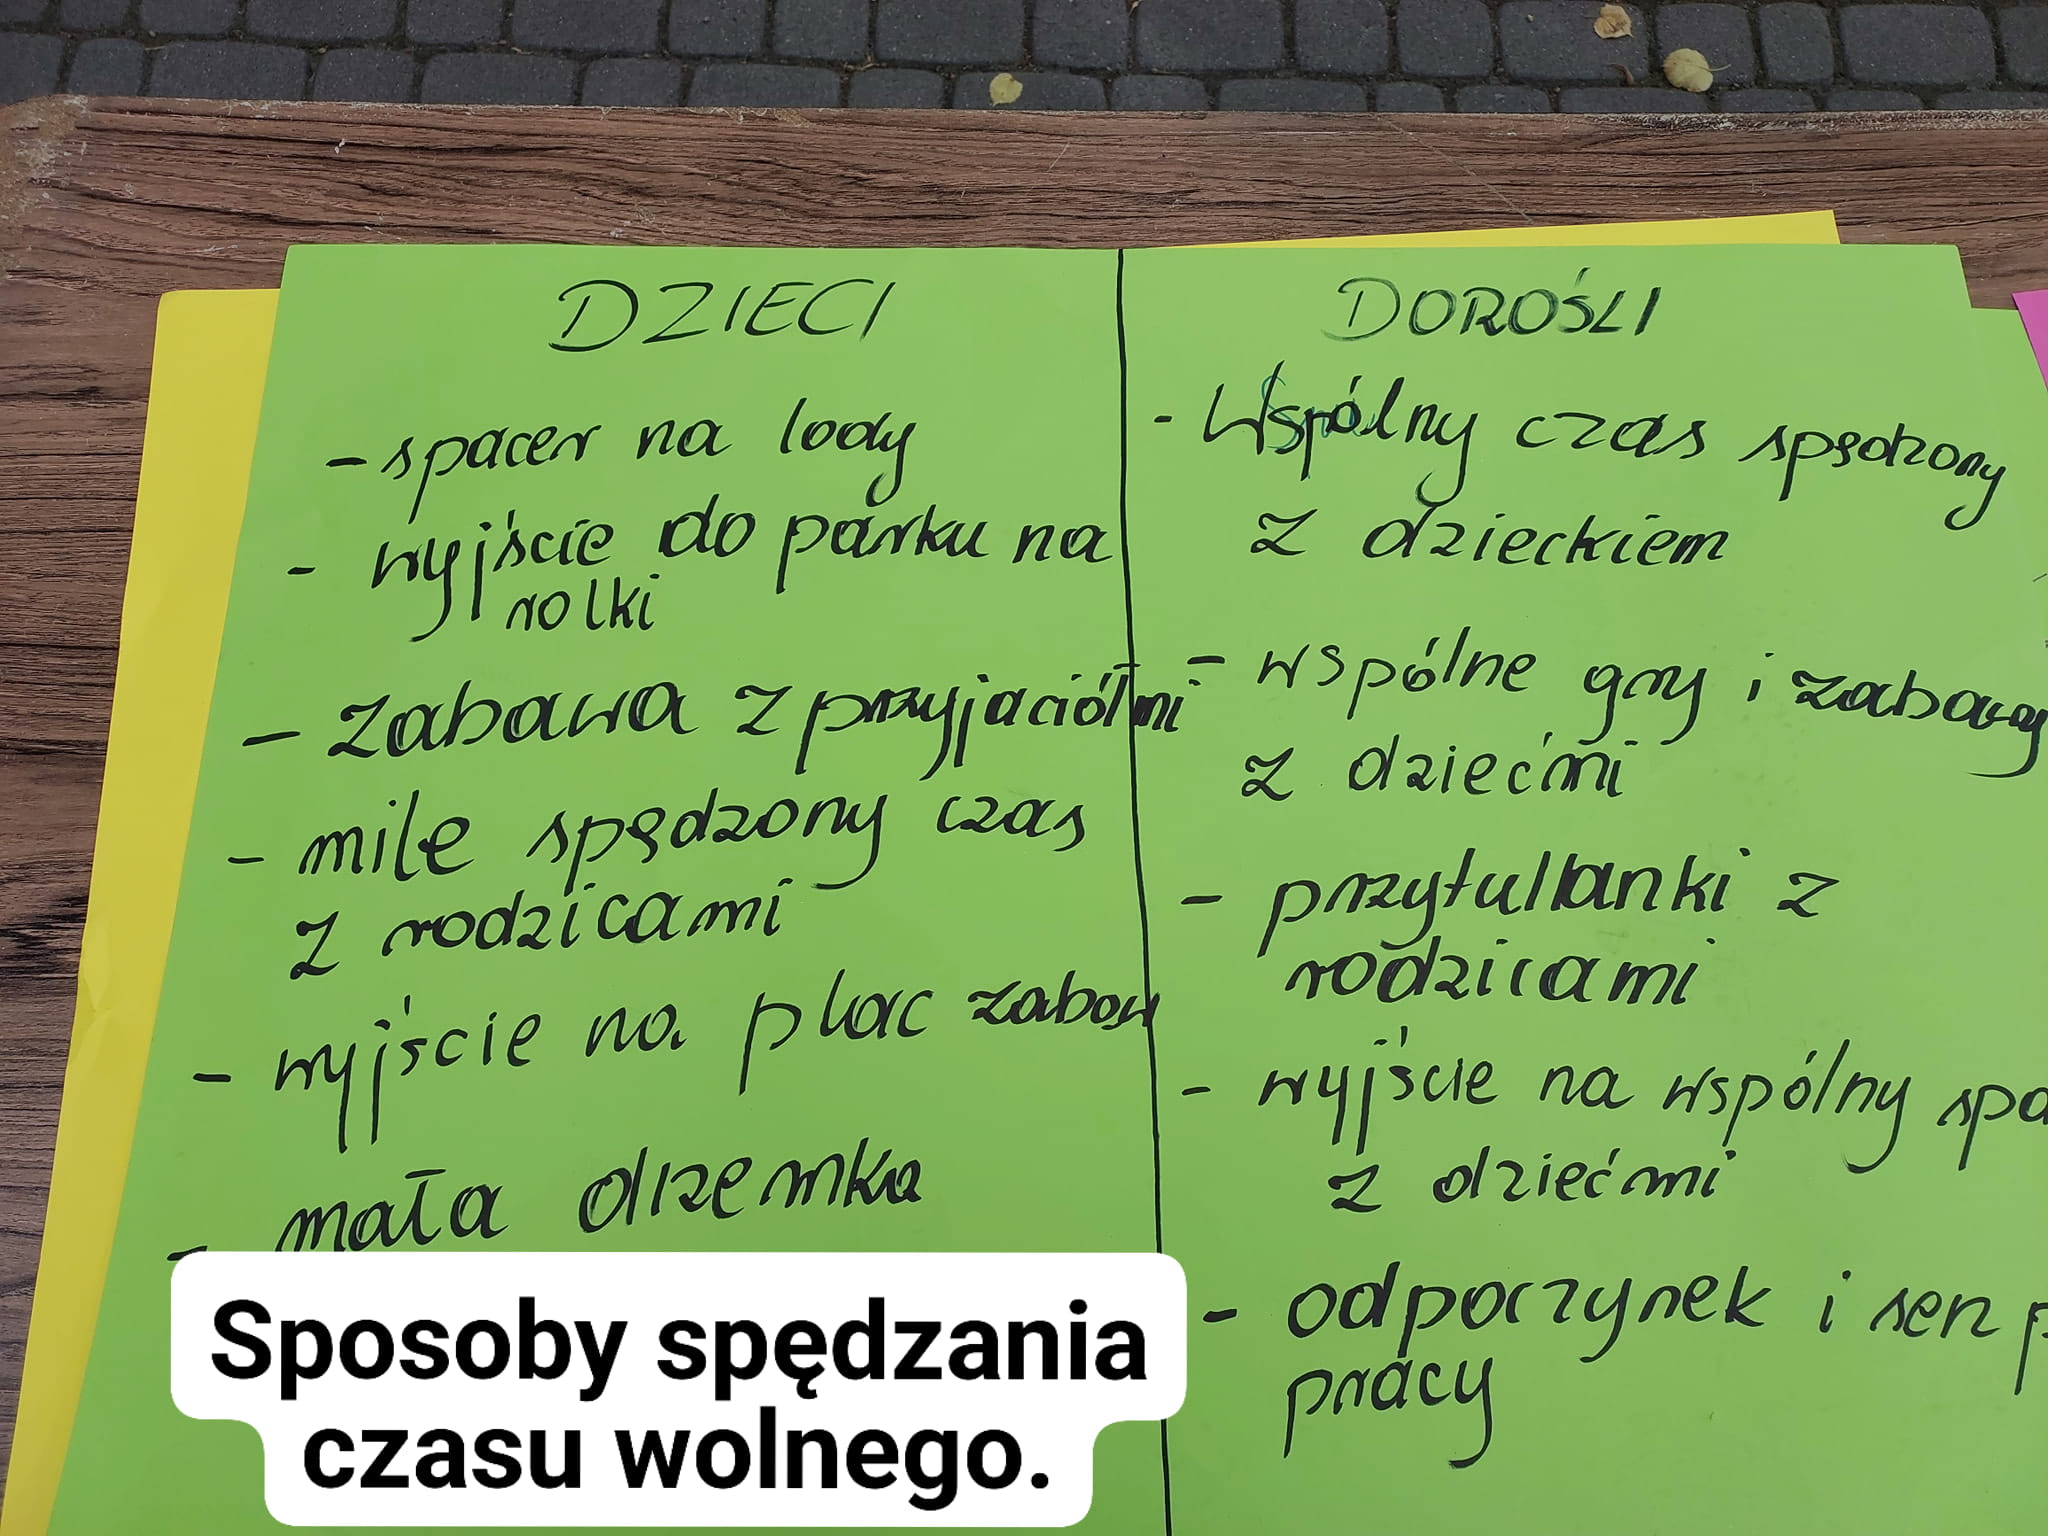 DZIECI
- spacer na lody
- wyjście do parku na
rolki
- zabawa z przyjaciółmi
- mile spędzony czas
z rodzicami
- wyjście na plac zabaw
- mała drzemka
DOROŚLI
- Wspólny czas spędzony
z dzieckiem
- wspólne gry i zabawy
z dziećmi
- przytulanki z
rodzicami
- wyjście na wspólny
z dziećmi
- odpoczynek i sen
pracy
Sposoby spędzania
czasu wolnego.